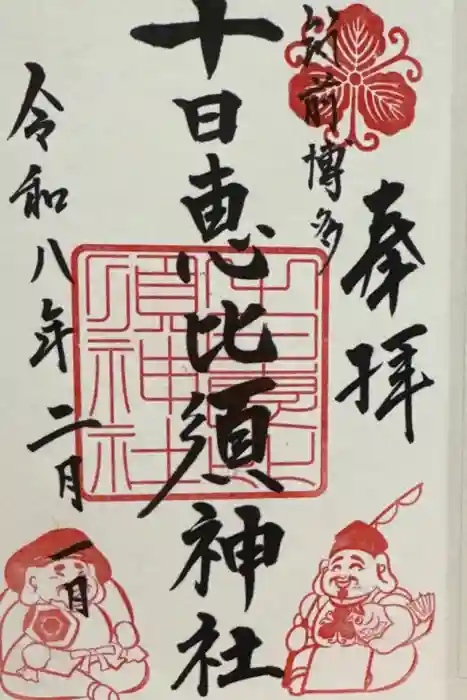 奉拝
筑前博多
十日恵比須神社
令和八年二月一日
十日恵比須神社